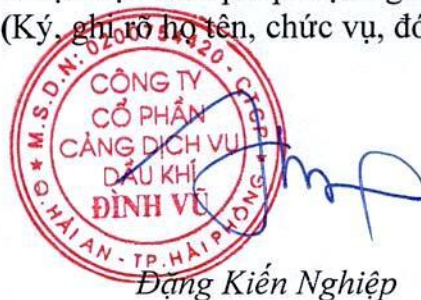 (Ký, ghi rõ họ tên, chức vụ, đó
M.S.D.N: 0200 4420 - CTCP
CÔNG TY
CỔ PHẦN
CẢNG DỊCH VỤ
DẦU KHÍ
ĐÌNH VŨ
Q. HẢI AN - TP. HẢI PHÒNG
Đặng Kiến Nghiệp